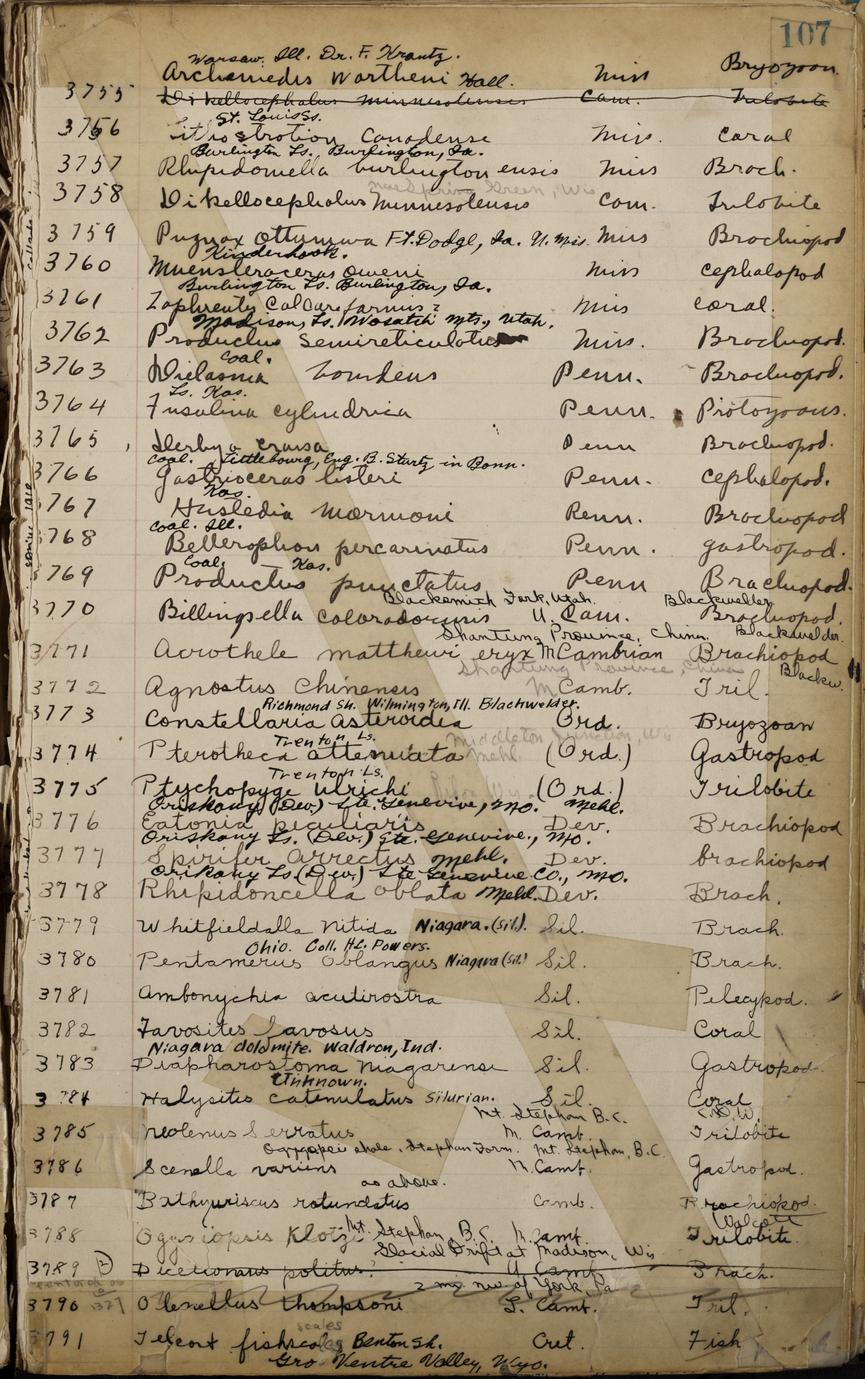 107
Warsaw. Ill. Dr. F. Krantz.
Archemedis Wortheni Hall. Miss Bryozoan
3755 Dikellocephalus minnesotensis Cam. Trilobite
St. Louis Ls.
3756 Lithostrotion Canadense Miss. Coral
Burlington Ls. Burlington, Ia.
3757 Rhipidomella burlingtonensis Miss Brach.
Green, Wis
3758 Dikellocephalus Minnesotensis Cam. Trilobite
3759 Pugnax Ottumwa Ft. Dodge, Ia. U. Mis. Miss Brachiopod
Kinderhook.
3760 Muensteroceras Oweni Miss Cephalopod
Burlington Ls. Burlington, Ia.
3761 Zaphrentis Calcareformis? Miss Coral.
Madison, Ls. Wasatch Mts, Utah.
3762 Productus Semireticulatus Miss. Brachiopod.
Coal.
3763 Dielasma bovidens Penn. Brachiopod.
Ls. Kas.
3764 Fusulina cylindrica Penn. Protozoans.
3765 Derbya crassa Penn Brachiopod.
Coal. Littlebourg, Eng. B. Startz in Bonn.
3766 Gastrioceras listeri Penn. Cephalopod.
Kas.
3767 Hustedia mormoni Penn. Brachiopod
Coal. Ill.
3768 Bellerophon percarinatus Penn. gastropod.
Coal. Kas.
3769 Productus punctatus Penn Brachiopod.
Blacksmith Fork, Utah. Blackwelder
3770 Billingsella coloradoensis U. Cam. Brachiopod.
Shantung Province, China. Blackwelder.
3771 Acrothele matthewi eryx M Cambrian Brachiopod
Shantung Province, China Blackw.
3772 Agnostus Chinensis M Camb. Tril.
Richmond Sh. Wilmington, Ill. Blackwelder.
3773 Constellaria Asteroidea Ord. Bryozoan
Trenton Ls. Middleton Junction, Wis
3774 Pterotheca attenuata Mehl. (Ord.) Gastropod
Trenton Ls.
3775 Ptychopyge Ulrichi (Ord.) Trilobite
Oriskany (Dev.) Ste. Genevive, Mo. Mehl.
3776 Eatonia peculiaris Dev. Brachiopod
Oriskany Ls. (Dev.) Ste. Genevive., Mo.
3777 Spirifer Arrectus Mehl. Dev. brachiopod
Oriskany Ls (Dev.) Ste Genevive Co., Mo.
3778 Rhipidoncella Oblata Mehl. Dev. Brach.
3779 Whitfieldalla Nitida Niagara. (Sil). Sil. Brach.
Ohio. Coll. H.L. Powers.
3780 Pentamerus Oblangus Niagara (Sil.) Sil. Brach.
3781 Ambonychia acutirostra Sil. Pelecypod.
3782 Favosites favosus Sil. Coral
Niagara dolomite. Waldron, Ind.
3783 Diapharostoma Niagarense Sil. Gastropod.
Unknown.
3784 Halysites catenulatus Silurian. Sil. Coral
Mt. Stephan B.C. C.D.W.
3785 Neolenus Serratus M. Camb. Trilobite
shale, Stephan Form. Mt. Stephan, B.C.
3786 Scenella varians M. Camb. Gastropod.
as above.
3787 Bathyuriscus rotundatus Camb. Brachiopod.
Walcott
3788 Ogygiopsis Klotzi Mt. Stephan, B.C. M. Camb. Trilobite.
Glacial Drift at Madison, Wis
3789 Dicellomus politus. U Camb. Brach.
2 mi. nw. of York, Pa
3790 Olenellus thompsoni L. Camb. Tril.
scales
3791 Teleost fish Benton Sh. Cret. Fish
Gro Ventre Valley, Wyo.